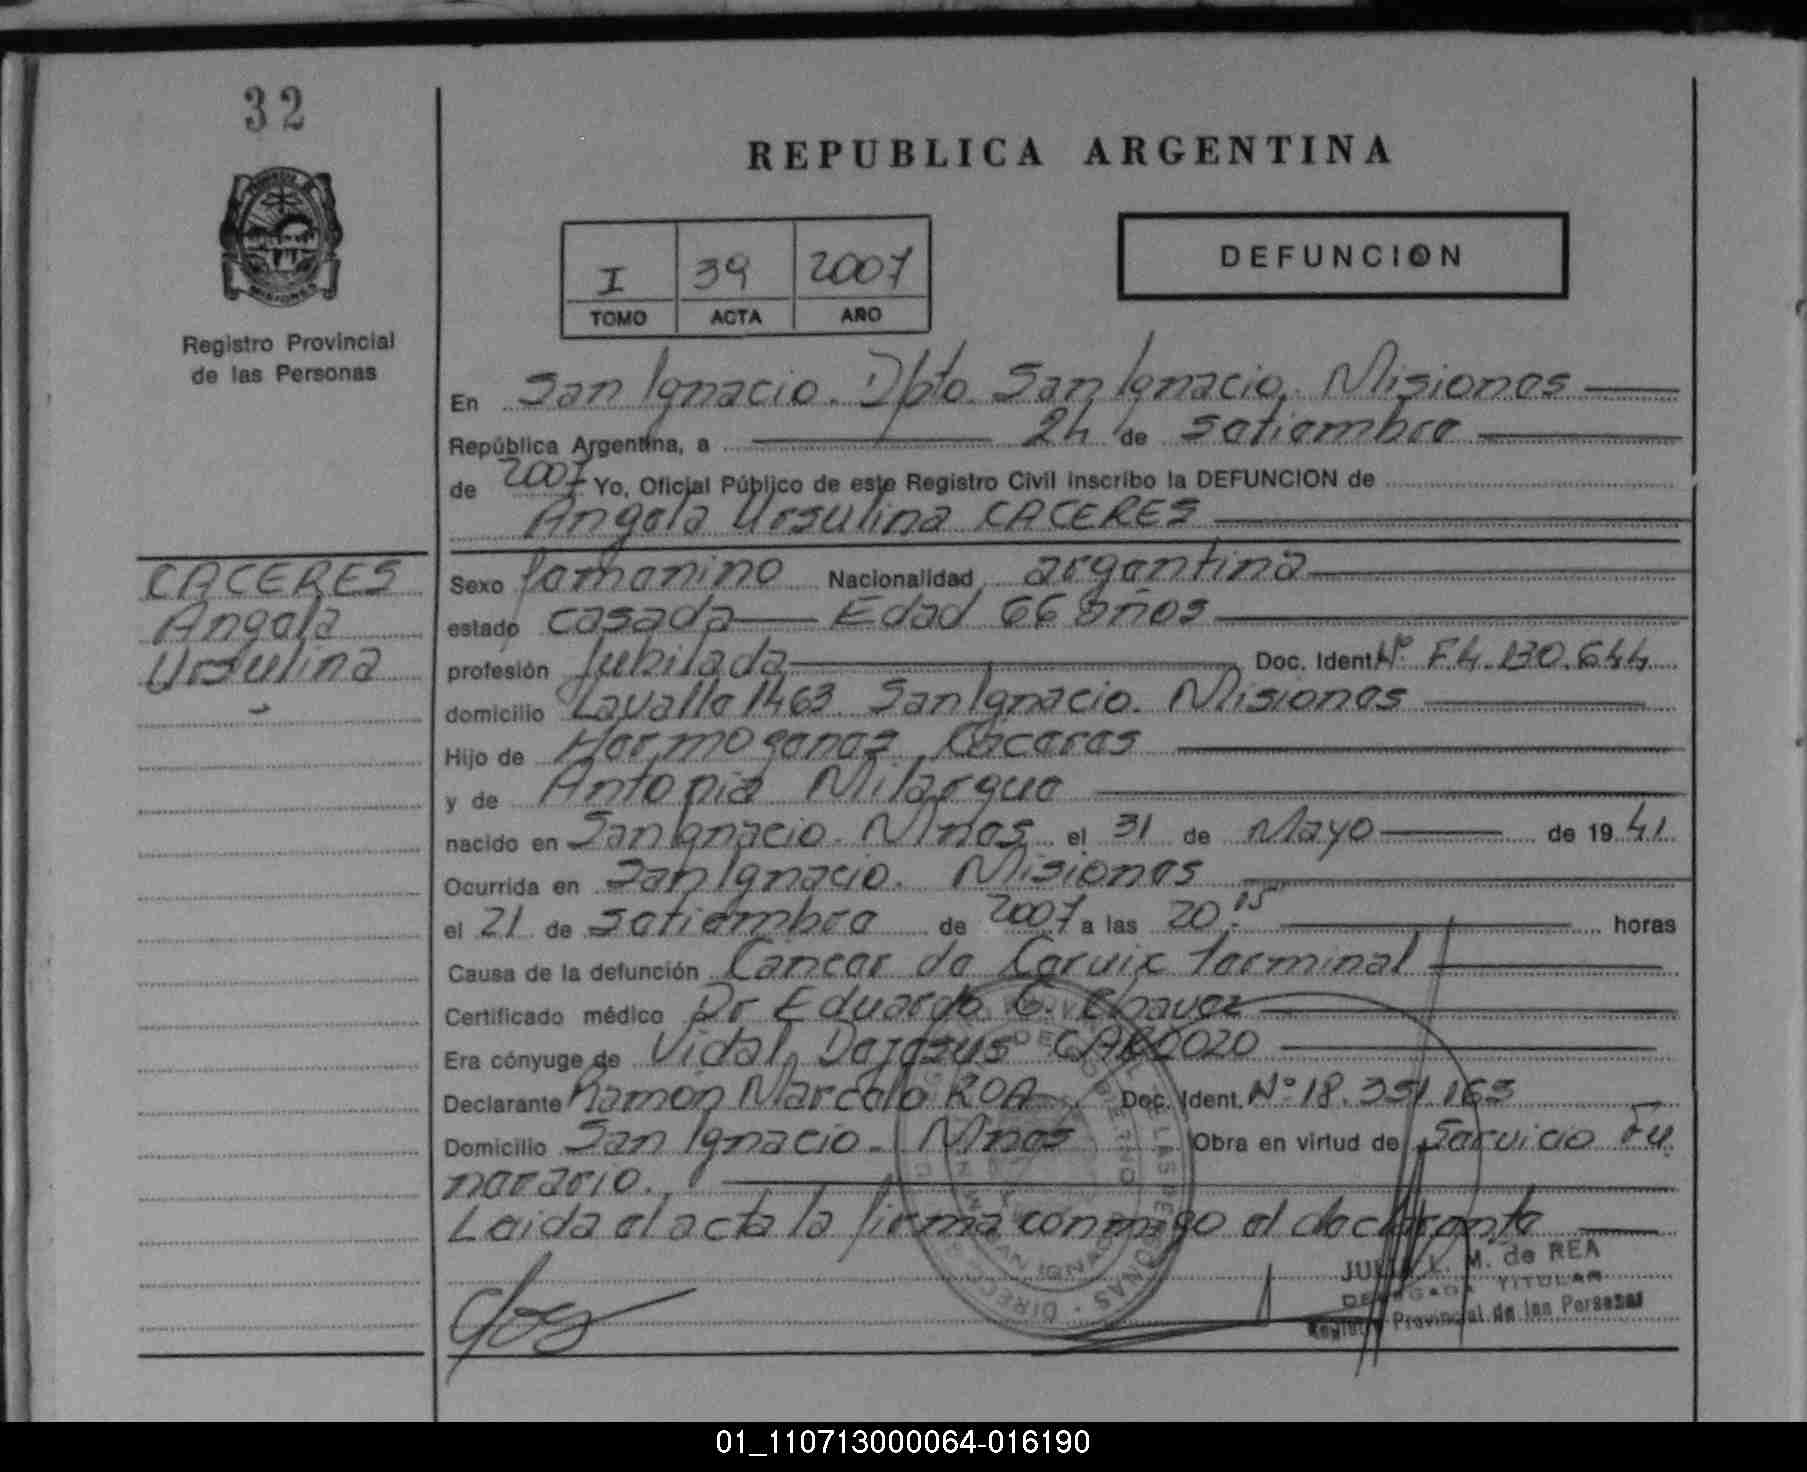 32
REPUBLICA ARGENTINA
I 39 2007
TOMO ACTA AÑO
DEFUNCION
MISIONES
Registro Provincial
de las Personas
En San Ignacio. Dpto. San Ignacio. Misiones
República Argentina, a 24 de setiembre
de 2007 Yo, Oficial Público de este Registro Civil inscribo la DEFUNCION de
Angela Ursulina CACERES
CACERES
Angela
Ursulina
Sexo femenino Nacionalidad argentina
estado casada Edad 66 años
profesión Jubilada Doc. Ident. Nº F4.130.644
domicilio Lavalle 1463 San Ignacio. Misiones
Hijo de Hermogenes Caceres
y de Antonia Milesque
nacido en San Ignacio. Mnes el 31 de Mayo de 1941
Ocurrida en San Ignacio. Misiones
el 21 de setiembre de 2007 a las 20:15 horas
Causa de la defunción Cancer de Cervix terminal
Certificado médico Dr Eduardo G. Chavez
Era cónyuge de Vidal Dejesus CARDOZO
Declarante Ramon Marcelo ROA Doc. Ident. Nº 18.351.163
Domicilio San Ignacio - Mnes Obra en virtud de Servicio Fu
nerario.
Leida el acta la firma conmigo el declarante
JULIA L. M. de REA
DELEGADA TITULAR
Registro Provincial de las Personas
01_110713000064-016190